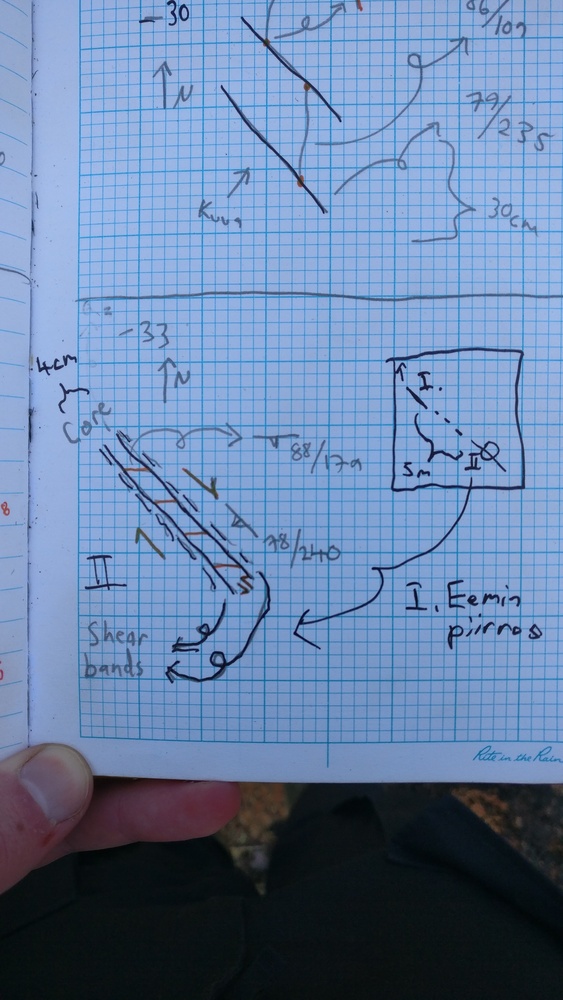 -30
N
79/235
Kuva
30cm
-33
N
4cm
Core
88/179
78/240
I.
5m
II
II
Shear
bands
I. Eemin
piirros
Rite in the Rain